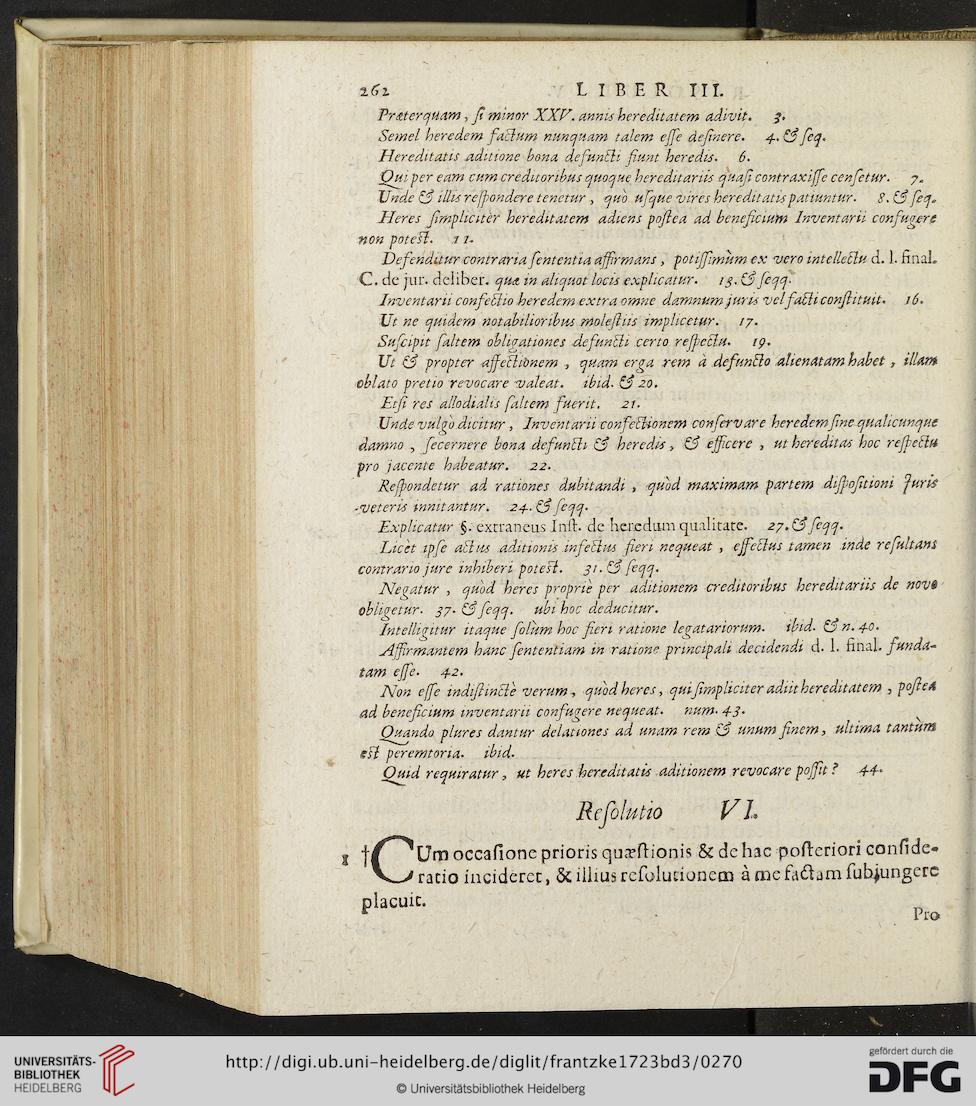 262 LIBER III.
Præterquam, ſi minor XXV. annis hereditatem adivit. 3.
Semel heredem factum nunquam talem eſſe deſinere. 4. & ſeq.
Hereditatis aditione bona defuncti fiunt heredis. 6.
Qui per eam cum creditoribus quoque hereditariis quaſi contraxiſſe cenſetur. 7.
Unde & illis reſpondere tenetur, quò uſque vires hereditatis patiuntur. 8. & ſeq.
Heres ſimplicitèr hereditatem adiens poſtea ad beneficium Inventarii confugere
non poteſt. 11.
Defenditur contraria ſententia affirmans, potiſſimùm ex vero intellectu d. l. final.
C. de jur. deliber. quæ in aliquot locis explicatur. 13. & ſeqq.
Inventarii confectio heredem extra omne damnum juris vel facti conſtituit. 16.
Ut ne quidem notabilioribus moleſtiis implicetur. 17.
Suſcipit ſaltem obligationes defuncti certo reſpectu. 19.
Ut & propter affectionem, quam erga rem à defuncto alienatam habet, illam
oblato pretio revocare valeat. ibid. & 20.
Etſi res allodialis ſaltem fuerit. 21.
Unde vulgò dicitur, Inventarii confectionem conſervare heredem ſine qualicunque
damno, ſecernere bona defuncti & heredis, & efficere, ut hereditas hoc reſpectu
pro jacente habeatur. 22.
Reſpondetur ad rationes dubitandi, quòd maximam partem diſpoſitioni Juris
veteris innitantur. 24. & ſeqq.
Explicatur §. extraneus Inſt. de heredum qualitate. 27. & ſeqq.
Licèt ipſe actus aditionis infectus fieri nequeat, effectus tamen inde reſultans
contrario jure inhiberi poteſt. 31. & ſeqq.
Negatur, quòd heres propriè per aditionem creditoribus hereditariis de novo
obligetur. 37. & ſeqq. ubi hoc deducitur.
Intelligitur itaque ſolùm hoc fieri ratione legatariorum. ibid. & n. 40.
Affirmantem hanc ſententiam in ratione principali decidendi d. l. final. funda-
tam eſſe. 42.
Non eſſe indiſtinctè verum, quòd heres, qui ſimpliciter adiit hereditatem, poſtea
ad beneficium inventarii confugere nequeat. num. 43.
Quando plures dantur delationes ad unam rem & unum finem, ultima tantùm
eſt peremtoria. ibid.
Quid requiratur, ut heres hereditatis aditionem revocare poſſit? 44.
Reſolutio VI.
1 †CUm occaſione prioris quæſtionis & de hac poſteriori conſide-
ratio incideret, & illius reſolutionem à me factam ſubjungere
placuit.
Pro
UNIVERSITÄTS-
BIBLIOTHEK
HEIDELBERG
http://digi.ub.uni-heidelberg.de/diglit/frantzke1723bd3/0270
© Universitätsbibliothek Heidelberg
gefördert durch die
DFG